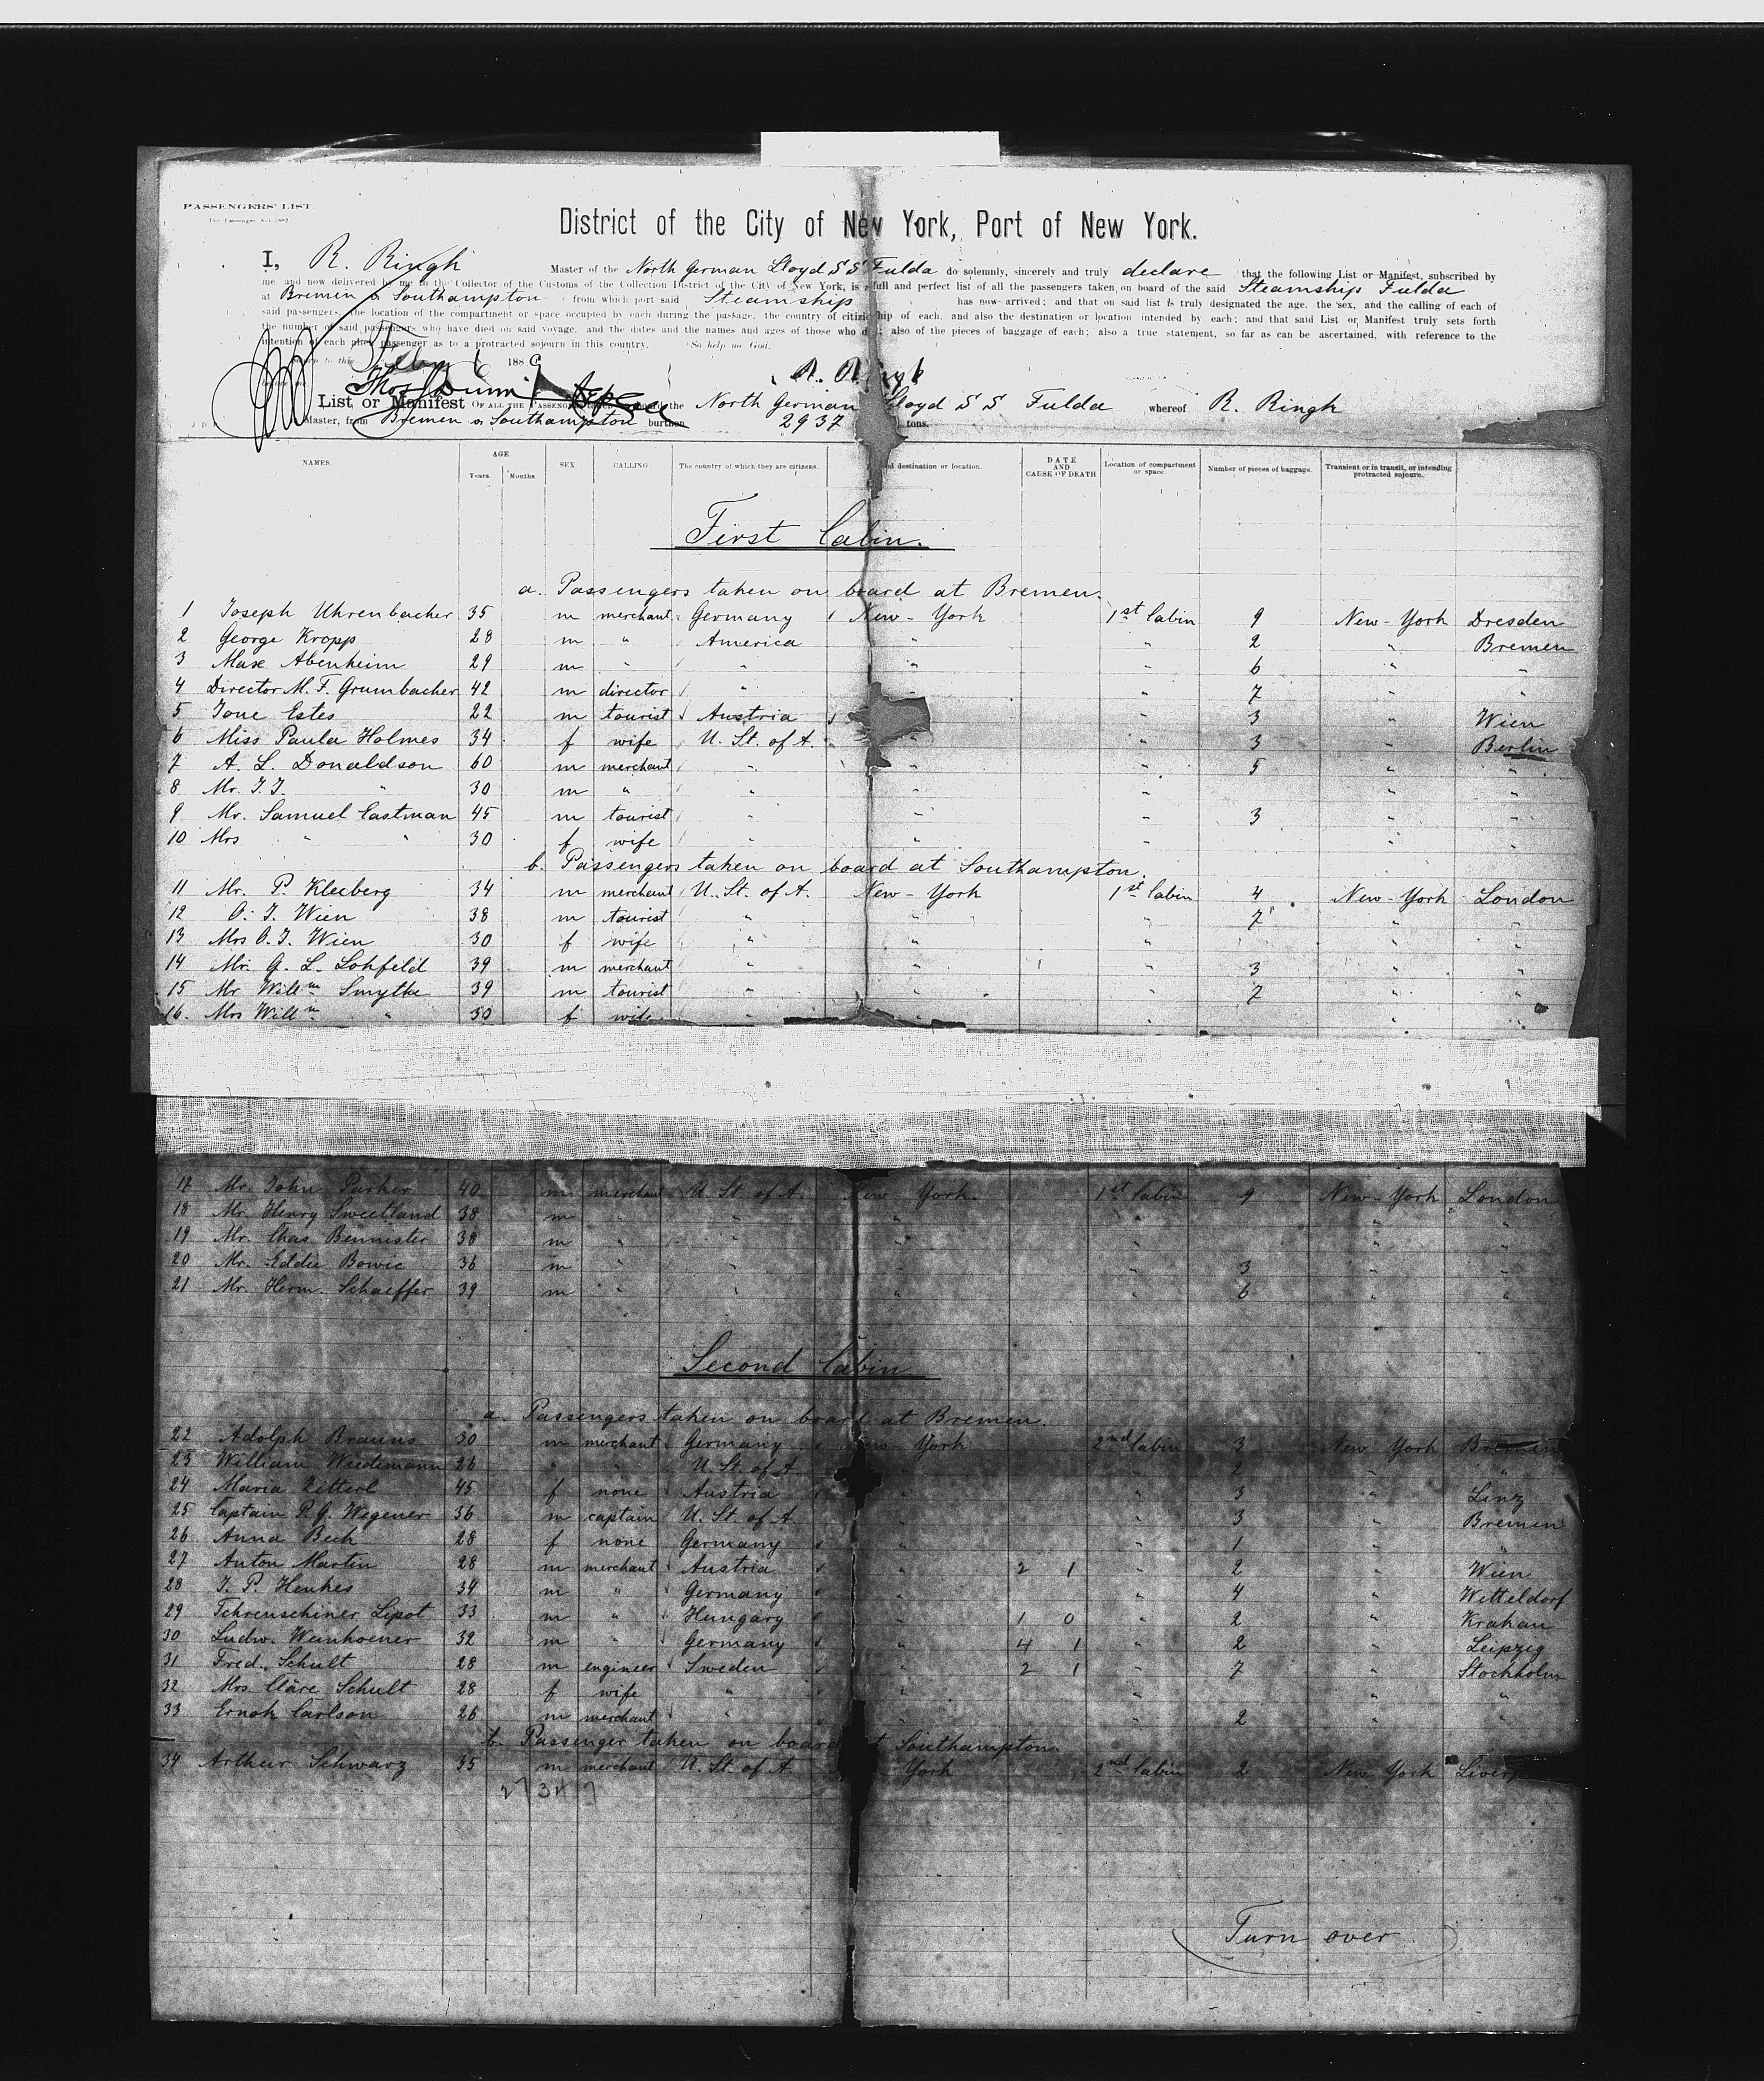 PASSENGERS' LIST.
The Passenger Act 1882
District of the City of New York, Port of New York.
I, R. Ringk Master of the North German Lloyd S S Fulda do solemnly, sincerely and truly declare that the following List or Manifest, subscribed by
me and now delivered by me to the Collector of the Customs of the Collection District of the City of New York, is a full and perfect list of all the passengers taken on board of the said Steamship Fulda
at Bremen & Southampton from which port said Steamship has now arrived; and that on said list is truly designated the age, the sex, and the calling of each of
said passengers, the location of the compartment or space occupied by each during the passage, the country of citizenship of each, and also the destination or location intended by each; and that said List or Manifest truly sets forth
the number of said passengers who have died on said voyage, and the dates and the names and ages of those who died; also of the pieces of baggage of each; also a true statement, so far as can be ascertained, with reference to the
intention of each alien passenger as to a protracted sojourn in this country. So help me God.
Sworn to this 1889
R. Ringk
List or Manifest OF ALL THE PASSENGERS the North German Lloyd S S Fulda whereof R. Ringk
Master, from Bremen & Southampton burthen 2937 tons.
NAMES. AGE Years. Months. SEX. CALLING The country of which they are citizens. destination or location. DATE AND CAUSE OF DEATH Location of compartment or space. Number of pieces of baggage. Transient or in transit, or intending protracted sojourn.
First Cabin.
a. Passengers taken on board at Bremen.
1 Joseph Uhrenbacher 35 m merchant Germany New-York 1st Cabin 9 New-York Dresden
2 George Kropp 28 m " America " " 2 " Bremen
3 Max Abenheim 29 m " " " " 6 " "
4 Director M. F. Grumbacher 42 m director " " 7 " "
5 Ione Estes 22 m tourist Austria " 3 " Wien
6 Miss Paula Holmes 34 f wife U. St. of A. " " 3 " Berlin
7 A. L. Donaldson 60 m merchant " " " 5 " "
8 Mr. J. J. " 30 m " " " " " "
9 Mr. Samuel Eastman 45 m tourist " " " 3 " "
10 Mrs " " 30 f wife " " " " "
b. Passengers taken on board at Southampton.
11 Mr. P. Kleeberg 34 m merchant U. St. of A. New-York 1st Cabin 4 New-York London
12 C. J. Wien 38 m tourist " " " 7 " "
13 Mrs C. J. Wien 30 f wife " " " " "
14 Mr. G. L. Lohfeld 39 m merchant " " " 3 " "
15 Mr Willm Smythe 39 m tourist " " " 7 " "
16. Mrs Willm " 30 f wife " " " " "
17 Mr. John Parker 40 m merchant U. St. of A. New York. 1st Cabin 9 New-York London
18 Mr. Henry Sweetland 38 m " " " " " "
19 Mr. Chas Bennister 38 m " " " " " "
20 Mr. Eddie Bowie 36 m " " " " 3 " "
21 Mr. Herm. Schaeffer 39 m " " " " 6 " "
Second Cabin
a. Passengers taken on board at Bremen.
22 Adolph Brauns 30 m merchant Germany New York 2nd Cabin 3 New York Bremen
23 William Wiedemann 26 " " U. St. of A. " " 2 " "
24 Maria Zitterl 45 f none Austria " " 3 " Linz
25 Captain P. G. Wegener 36 m captain U. St. of A. " " 3 " Bremen
26. Anna Beck 28 f none Germany " " 1 " "
27 Anton Martin 28 m merchant Austria " 2 1 " 2 " Wien
28 J. P. Henkes 34 m " Germany " " 4 " Witteldorf
29 Tehrenschiner Lipot 33 m " Hungary " 1 0 " 2 " Krakau
30 Ludw. Weinhoener 32 m " Germany " 4 1 " 2 " Leipzig
31 Fred. Schult 28 m engineer Sweden " 2 1 " 7 " Stockholm
32 Mrs. Cläre Schult 28 f wife " " " " "
33 Ernst Carlson 26 m merchant " " " 2 " "
b. Passenger taken on board at Southampton.
34 Arthur Schwarz 35 m merchant U. St. of A. York 2nd Cabin 2 New York
Turn over